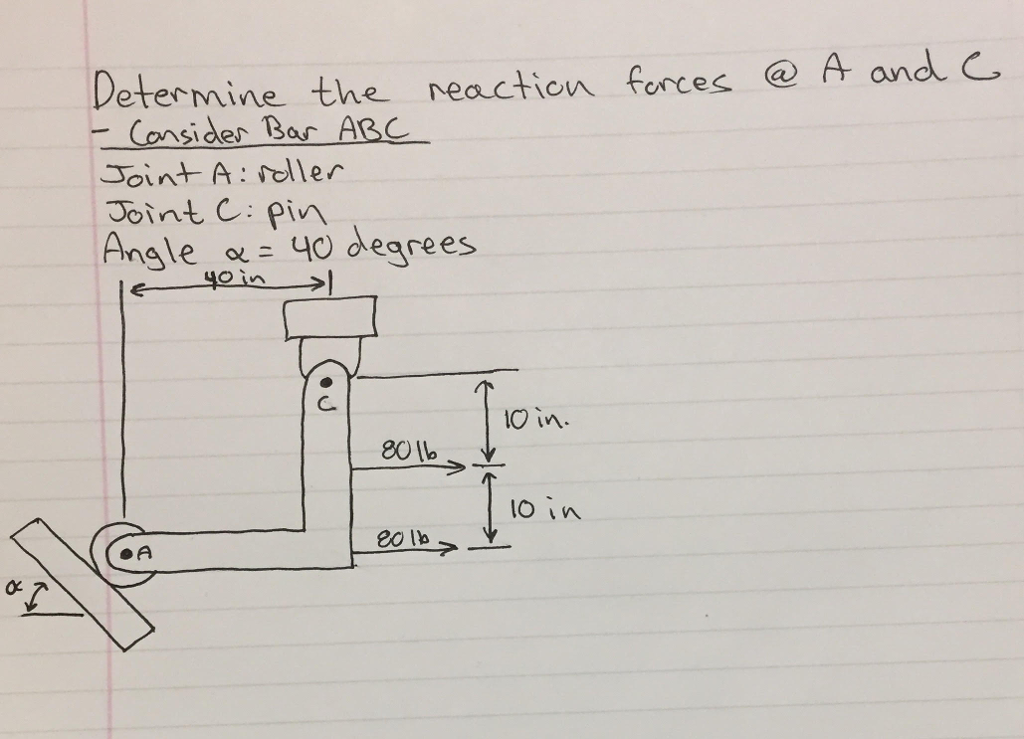 Determine the reaction forces @ A and C
- Consider Bar ABC
Joint A: roller
Joint C: pin
Angle α = 40 degrees
40 in
C
10 in.
80 lb
10 in
80 lb
A
α